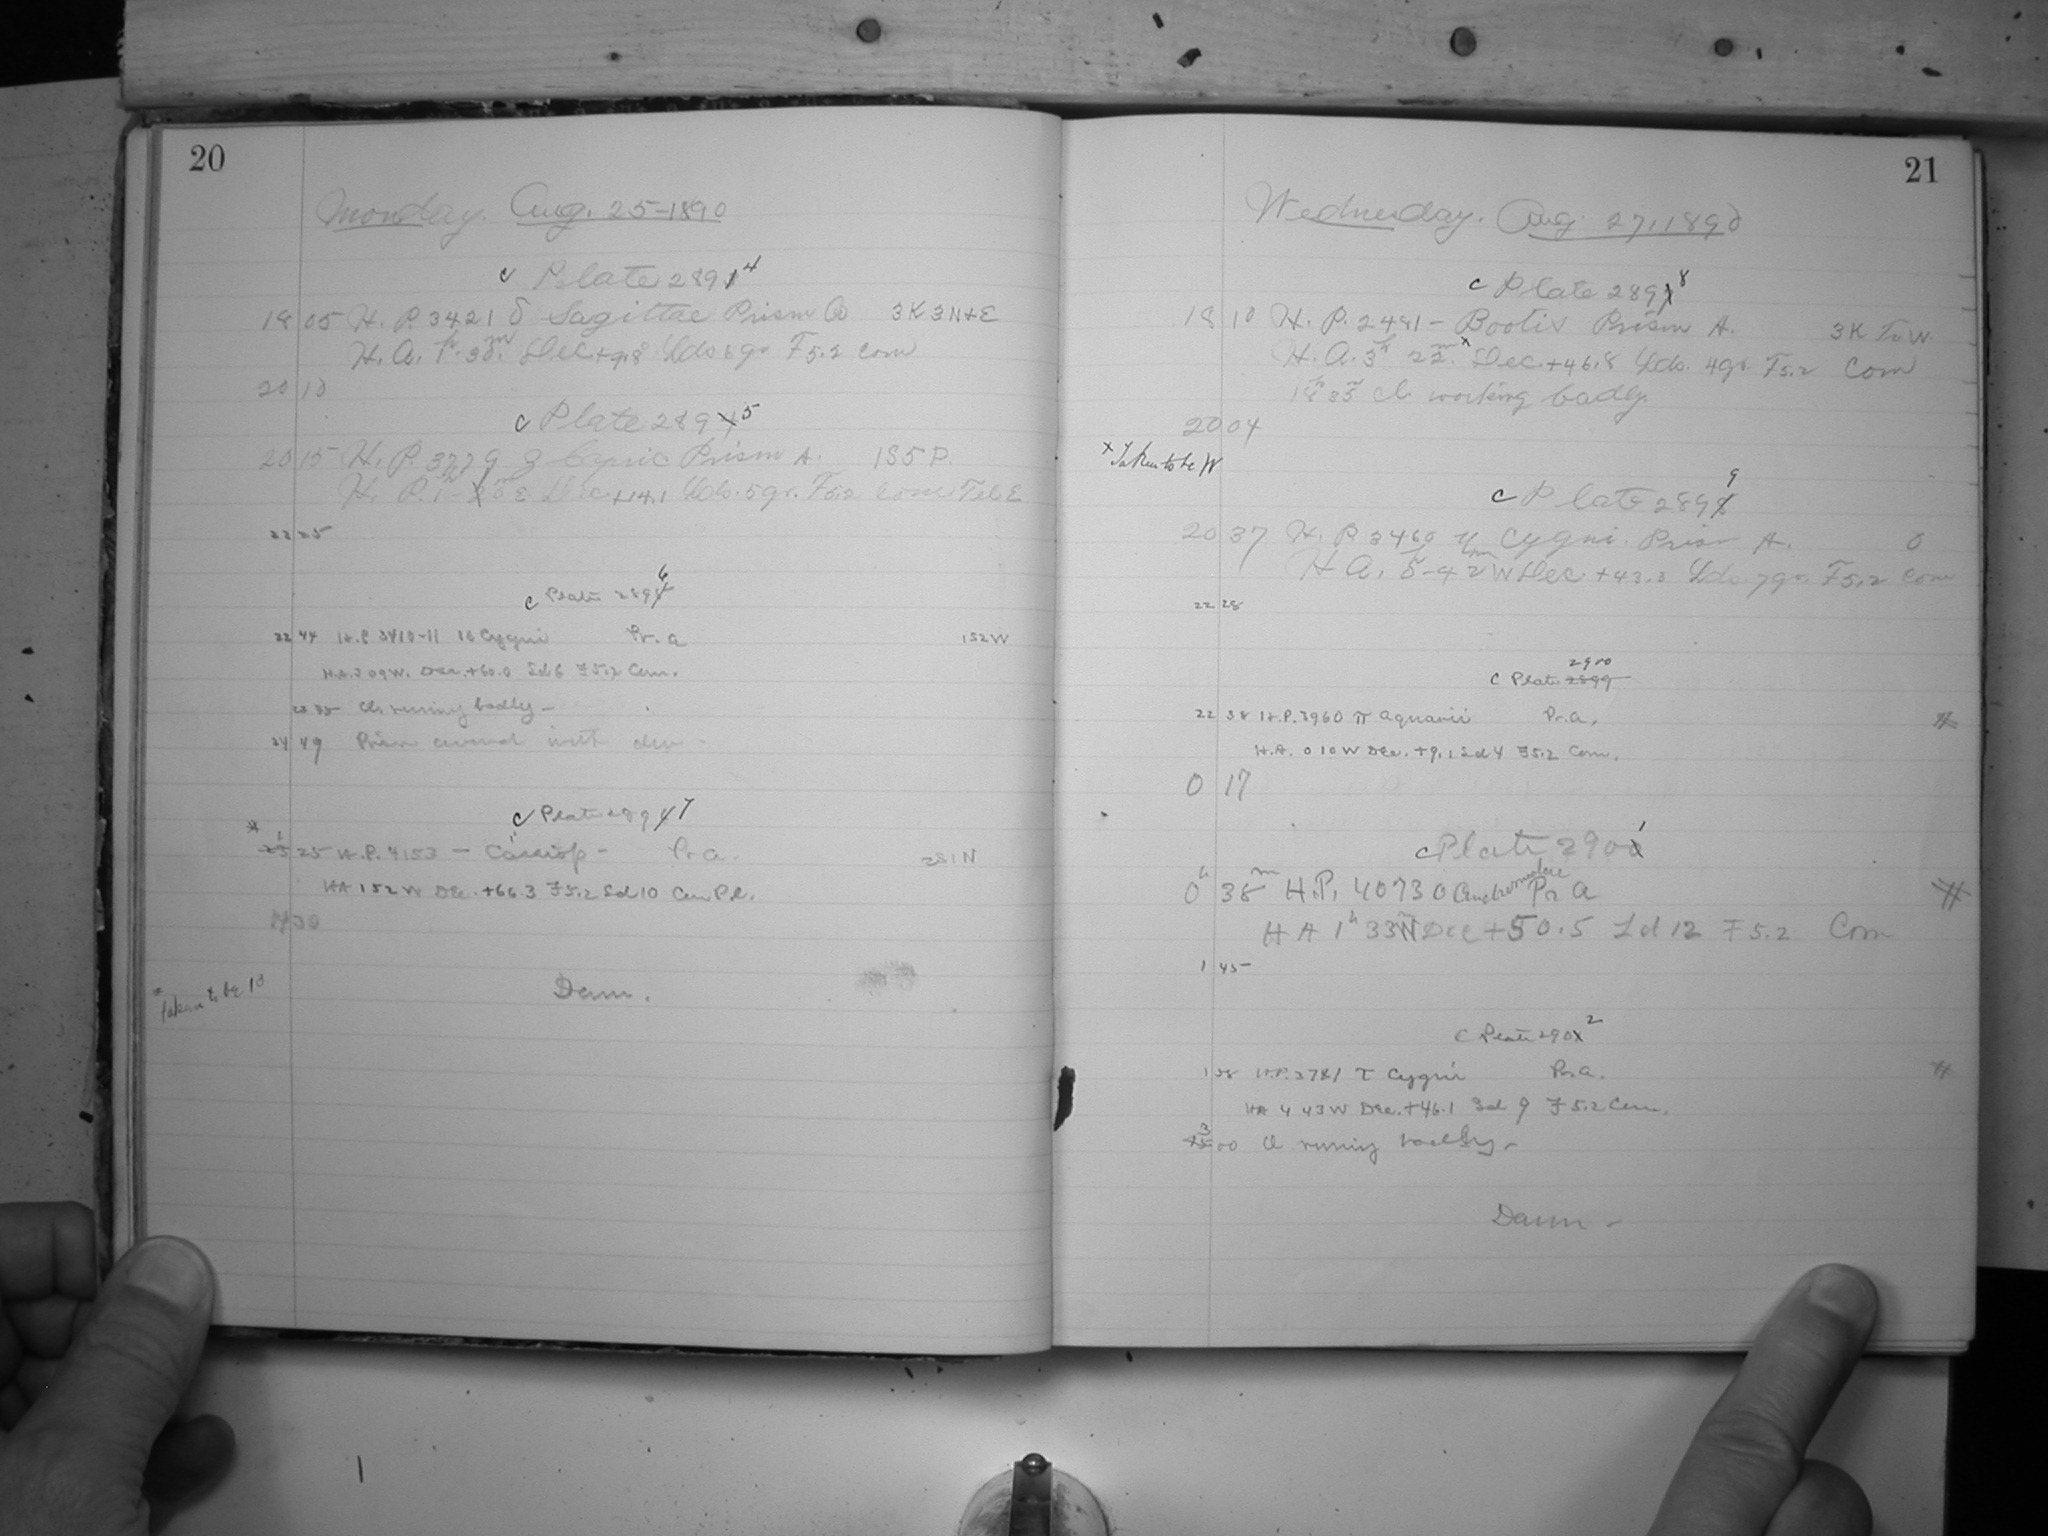 20
Monday. Aug. 25-1890
c Plate 2894
18 05 H. P. 3421 δ Sagittae Prism 3K 3N+E
H. A. 1h-30m. Dec +9.8 Lds 8gr F5.2 Com
20 10
c Plate 2895
20 15 H. P. Prism A. 1S5P.
H. P. Dec +14.1 Lds. 5gr. F5.2 Com Tel E
22 25
c Plate 2896
22 44 H.P 3410-11 16 Cygni Pr. a 1S2W
H.A. 3 09 W. Dec. +60.0 Ld 6 F5.2 Com.
Cl. running badly -
24 49 Prism covered with dew -
c Plate 2897
* 1 25 H.P. 4153 - Cassiop - Pr a. 2S1N
HA 1 52 W Dec. +66.3 F5.2 Ld 10 Com Pl.
30
* Taken to be 10
Dawn.
21
Wednesday. Aug 27, 1890
c Plate 2898
18 10 H. P. 2481 - Bootis Prism A. 3K To W.
H. A. 3h 22m. x Dec. +46.8 Lds. 4gr. F5.2 Com
18h 35m cl. working badly.
20 04
x Taken to be W
c Plate 2899
20 37 H. P. 3460 Cygni. Prism A. 0
H A. 5h-42m W Dec. +43.3 Lds. 7gr. F5.2 Com
22 28
2900
c Plate 2899
22 38 H.P. 3960 π Aquarii Pr. a.
H.A. 0 10 W Dec. +9.1 Ld 4 F5.2 Com.
0 17
c Plate 2901
0h 38m H.P. 4073 O Andromedae Pr a
H A 1h 33m W Dec +50.5 Ld 12 F 5.2 Com
1 45
c Plate 2902
1 58 H.P. 3781 τ Cygni Pr. a.
HA 4 43 W Dec. +46.1 Ld 9 F 5.2 Com.
3 00 Cl running badly -
Dawn -